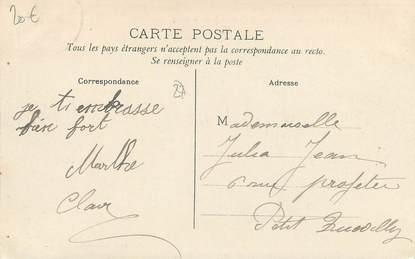 20€
CARTE POSTALE
Tous les pays étrangers n'acceptent pas la correspondance au recto.
Se renseigner à la poste
Correspondance
je t'embrasse
bien fort
Marthe
27
Adresse
Mademoiselle
Julia Jean
6 rue
Petit Quevilly